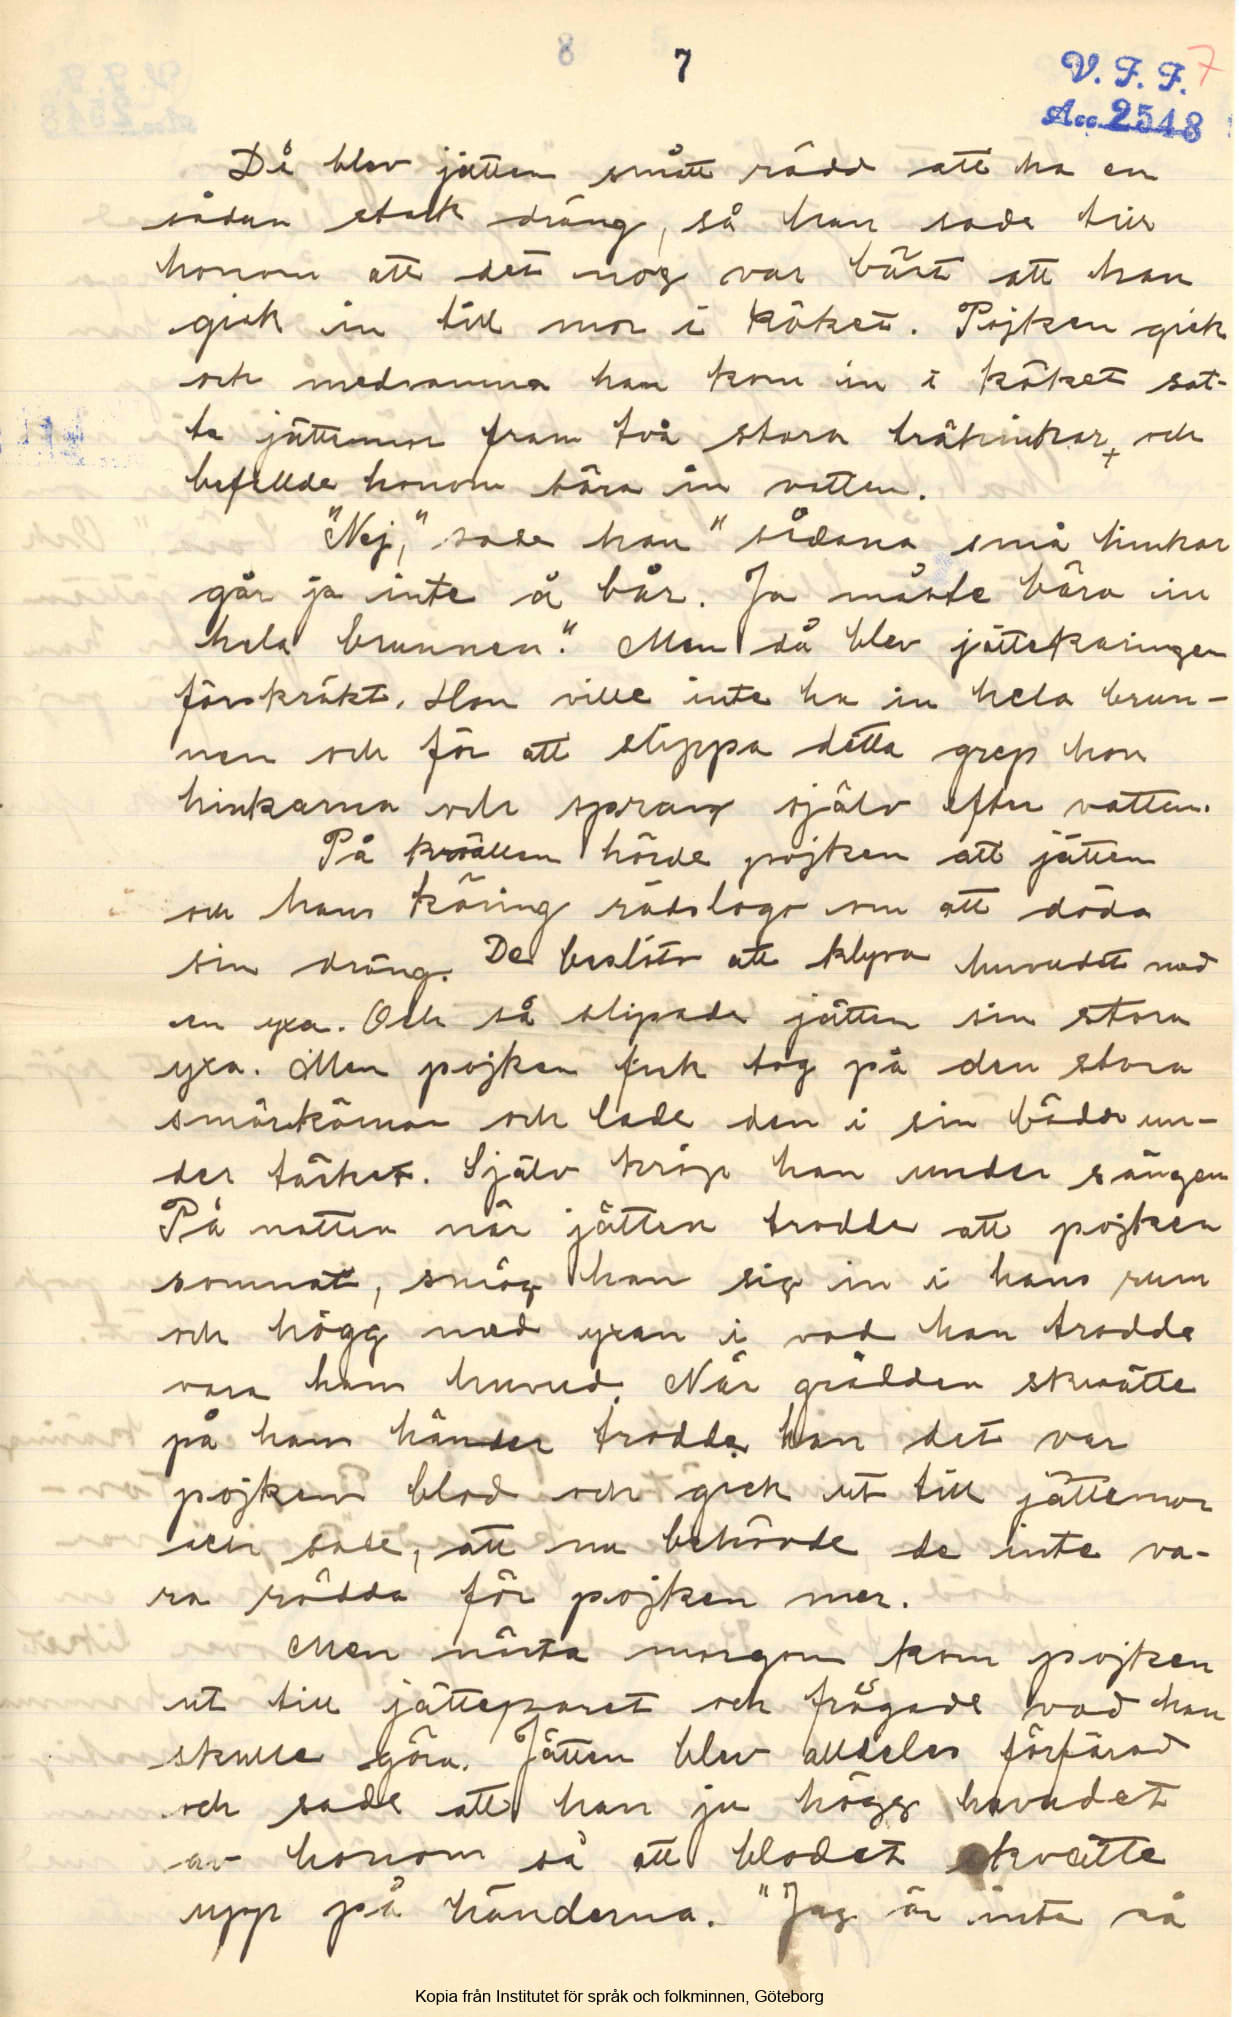 8 7
V. F. F. 7
Acc. 2548
Då blev jätten smått rädd att ha en
sådan stark dräng, så han sade till
honom att det nog var bäst att han
gick in till mor i köket. Pojken gick
och medsamma han kom in i köket sat-
te jättemor fram två stora träkinkar, och
befallde honom bära in vatten.
"Nej," sade han "sådana små hinkar
går ja inte å bär. Ja måste bära in
hela brunnen". Men då blev jättekäringen
förskräkt. Hon ville inte ha in hela brun-
nen och för att slippa detta grep hon
hinkarna och sprang själv efter vatten.
På kvällen hörde pojken att jätten
och hans käring rådslogo om att döda
sin dräng. De beslöto att klyva huvudet med
en yxa. Och så slipade jätten sin stora
yxa. Men pojken fick tag på den stora
smörkärnan och lade den i sin bädd un-
der täcket. Själv kröp han under sängen
På natten när jätten trodde att pojken
somnat, smög han sig in i hans rum
och högg med yxan i vad han trodde
vara hans huvud. När grädden skvätte
på hans händer trodde han det var
pojkens blod och gick ut till jättemor
och sade, att nu behövde de inte va-
ra rädda för pojken mer.
Men nästa morgon kom pojken
ut till jätteparet och frågade vad han
skulle göra. Jätten blev alldeles förfärad
och sade att han ju högg huvudet
av honom så att blodet skvätte
upp på händerna. "Jag är inte så
Kopia från Institutet för språk och folkminnen, Göteborg